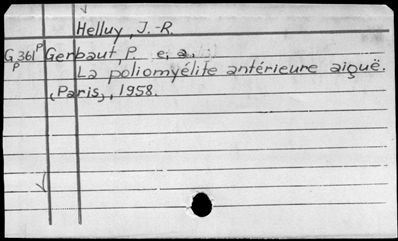 Helluy, J.-R.
G 361 P Gerbaut, P. e. a.
P La poliomyélite antérieure aiguë.
(Paris), 1958.